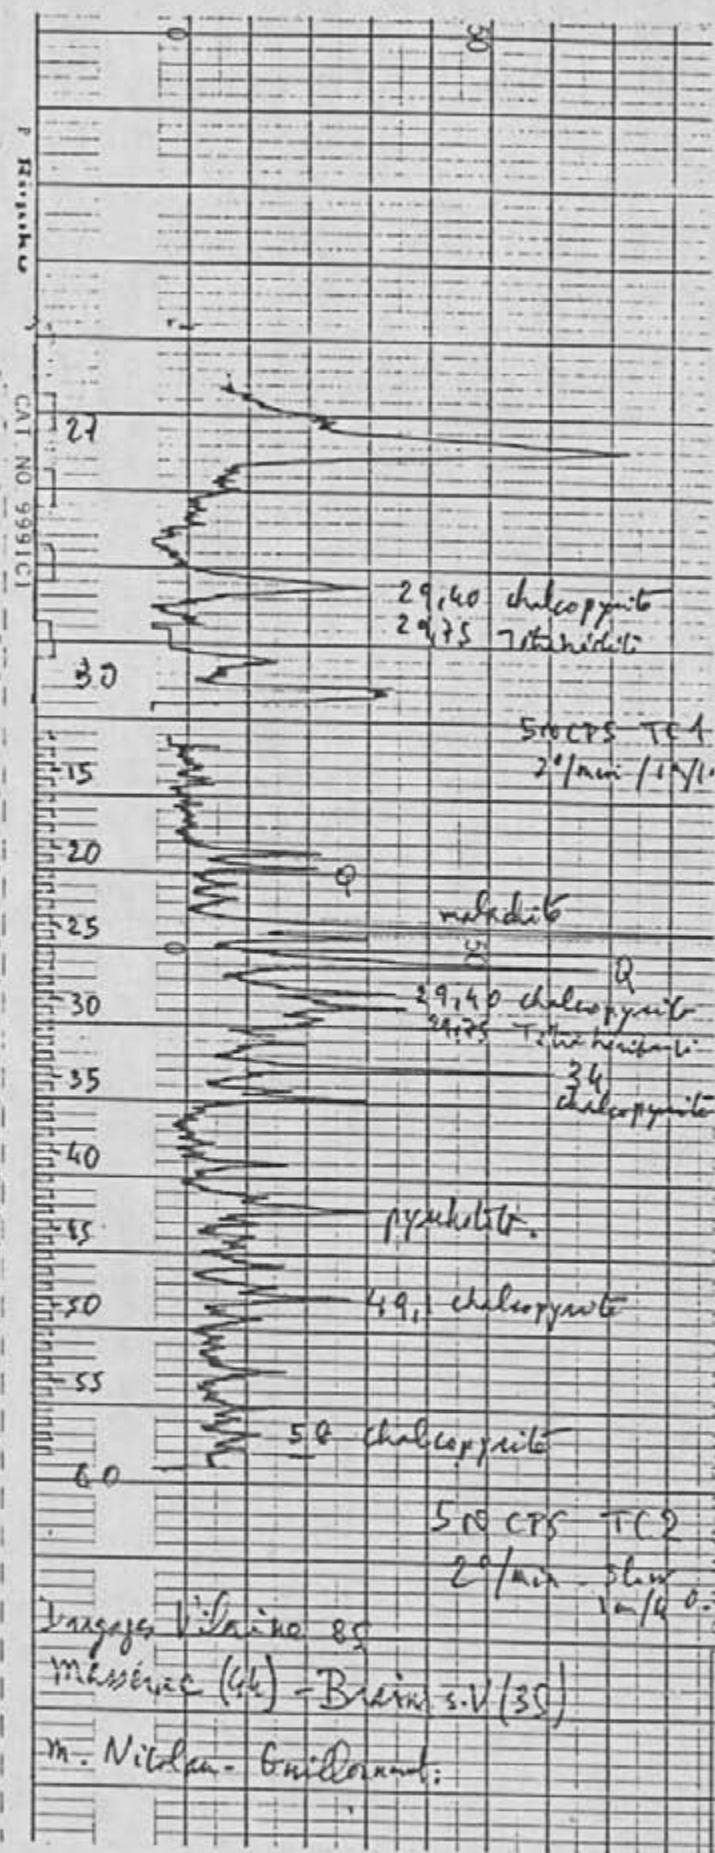 0 50
CAT NO 9991C1
27
29,40 chalcopyrite
29,75 Tétraédrite
30
500 CPS TC1
2°/min /
15
20
Q
malachite
25
0 50
Q
29,40 chalcopyrite
30
29,75
34
35
chalcopyrite
40
45
pyrrhotite.
49,1 chalcopyrite
50
55
58 chalcopyrite
60
500 CPS TC2
2°/min - slow
Dragages Vilaine 85
Massérac (44) - Brain s.V (35)
M. Nicolau - Guillaumet.